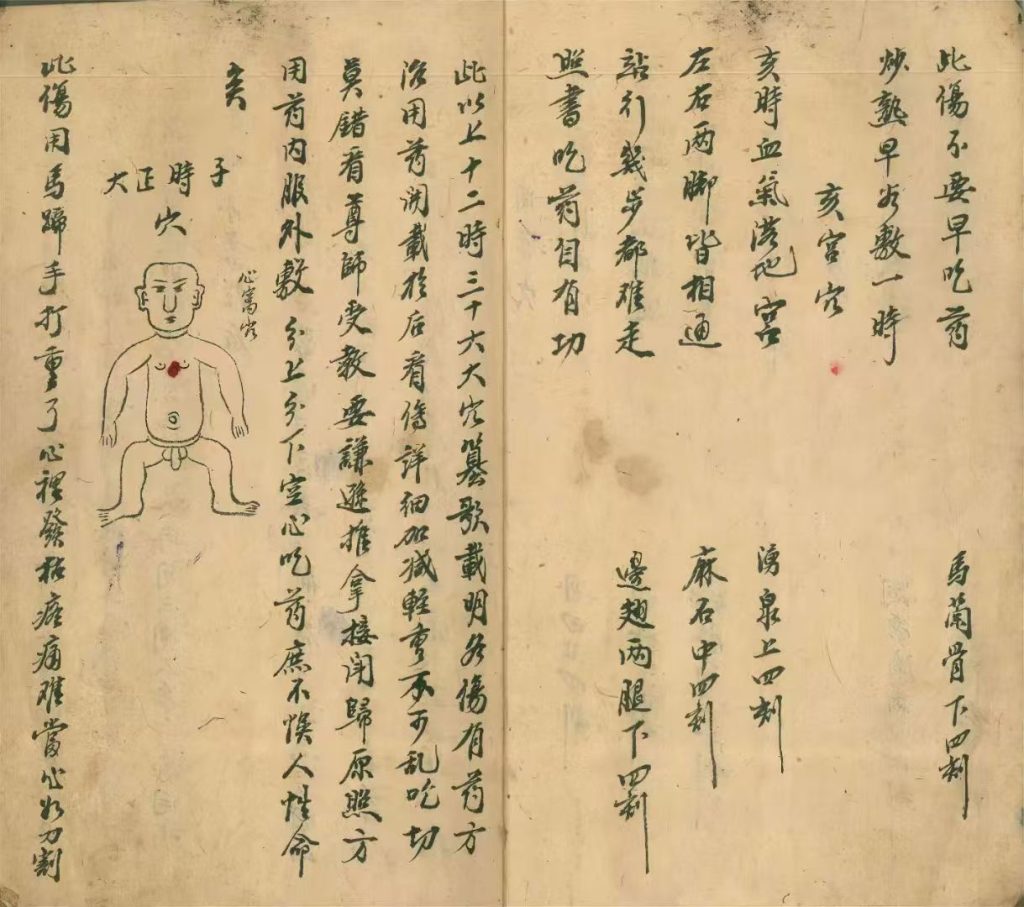 此傷不要早吃葯
馬蘭骨下四刻
炒熟早術敷一時
亥宮穴
亥時血氣落地宮
湧泉上四刻
左右两脚皆相通
麻石中四刻
站行幾步都难走
邊翅两腿下四刻
照書吃葯自有功
此以上十二時三十六大穴纂歌載明各傷有葯方
治用葯開載於后看傷詳細加减輕重不可乱吃切
莫錯看尊師受教要謙遜推拿接鬥歸原照方
用葯内服外敷分上分下空心吃葯庶不悞人性命
亥
子時正大
穴
心窩穴
此傷用馬蹄手打重了心裡發枯疼痛难當心如刀割